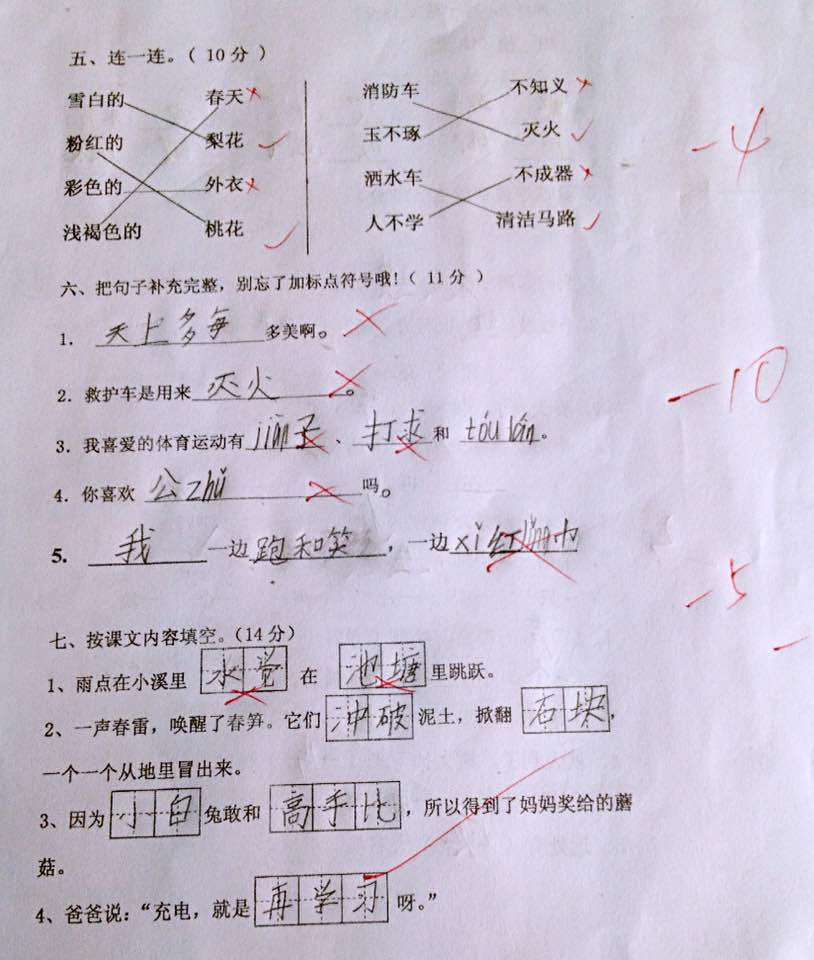 五、连一连。（ 10 分 ）
雪白的 春天 消防车 不知义
粉红的 梨花 玉不琢 灭火
彩色的 外衣 洒水车 不成器
浅褐色的 桃花 人不学 清洁马路
-4
六、把句子补充完整，别忘了加标点符号哦!（ 11 分 ）
1. 天上多每多美啊。
2. 救护车是用来灭火。
-10
3. 我喜爱的体育运动有 子、打求和 tóu lán。
4. 你喜欢 公 zhǔ 吗。
5. 我一边跑和笑，一边 xì 红
-5
七、按课文内容填空。（14 分）
1、雨点在小溪里 水觉 在 池塘 里跳跃。
2、一声春雷，唤醒了春笋。它们 冲破 泥土，掀翻 石块，
一个一个从地里冒出来。
3、因为 小白 兔敢和 高手比，所以得到了妈妈奖给的蘑
菇。
4、爸爸说：“充电，就是 再学习 呀。”